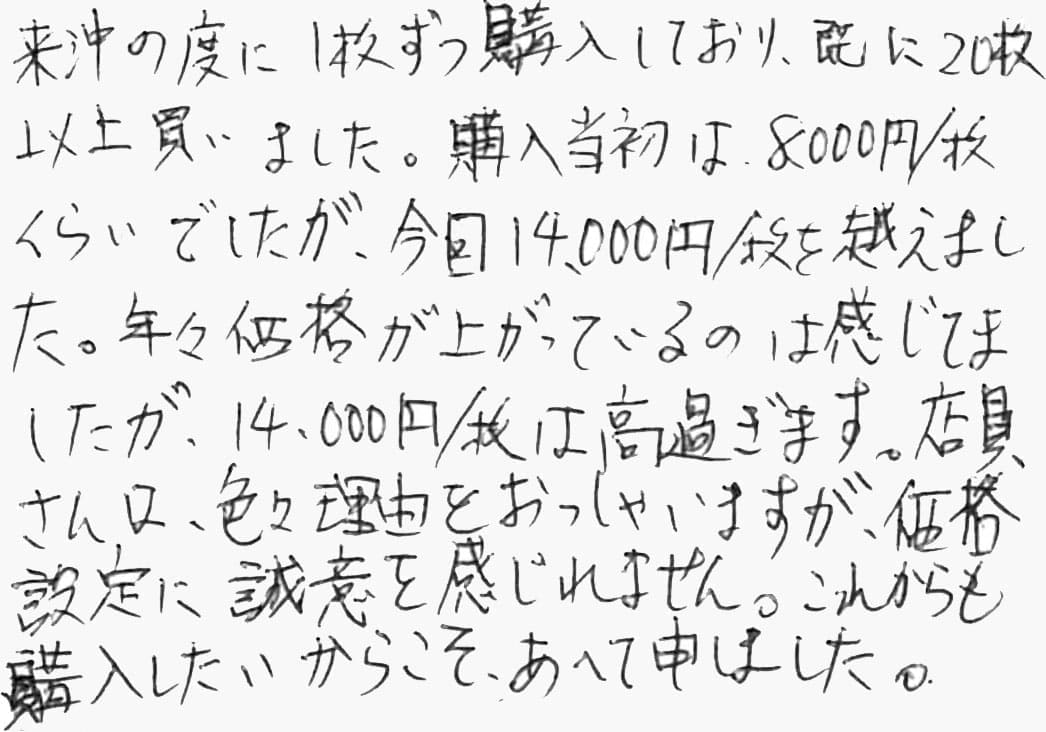 来沖の度に1枚ずつ購入しており、既に20枚
以上買いました。購入当初は、8000円/枚
くらいでしたが、今回14,000円/枚を越えまし
た。年々価格が上がっているのは感じてま
したが、14、000円/枚は高過ぎます。店員
さんは、色々理由をおっしゃいますが、価格
設定に誠意を感じれません。これからも
購入したいからこそ、あへて申しました。